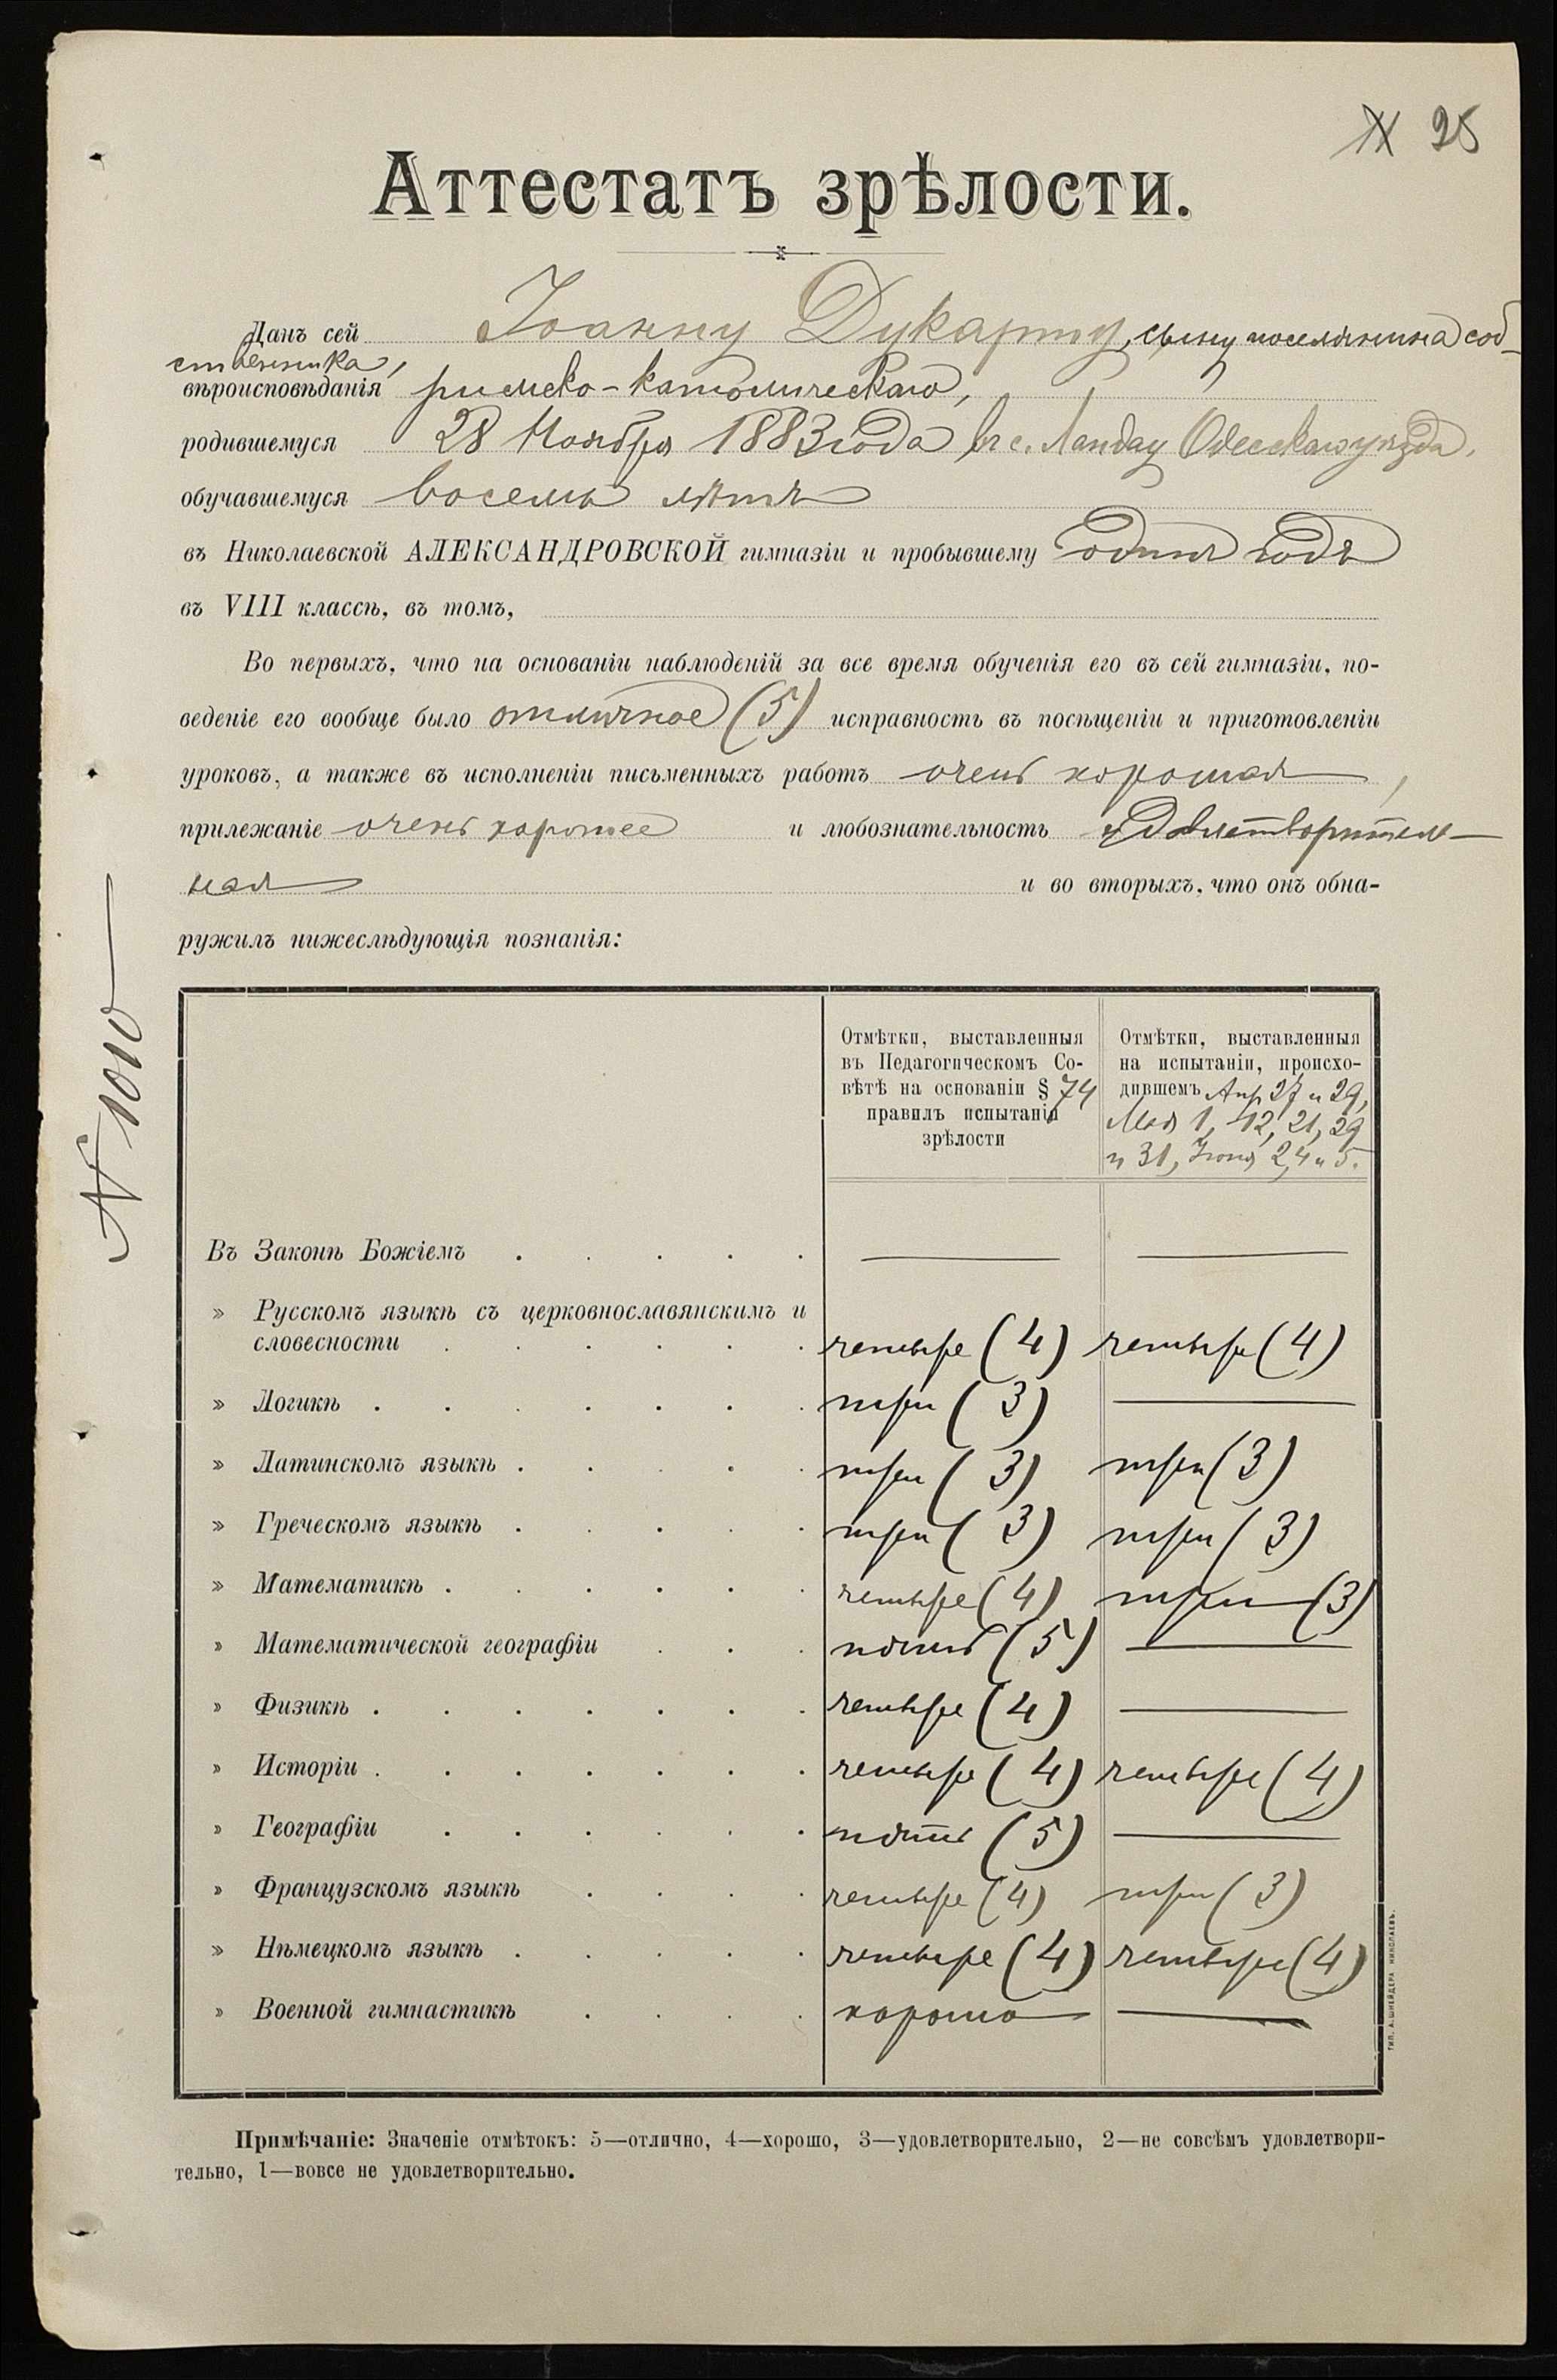 № 25
Аттестатъ зрѣлости.
Данъ сей Іоанну Дукарту, сыну поселянина соб-
ственника,
вѣроисповѣданія римско-католическаго,
родившемуся 28 Ноября 1883 года въ с. Ландау Одесскаго уѣзда,
обучавшемуся восемь лѣтъ
въ Николаевской АЛЕКСАНДРОВСКОЙ гимназіи и пробывшему одинъ годъ
въ VIII классѣ, въ томъ,
Во первыхъ, что на основаніи наблюденій за все время обученія его въ сей гимназіи, по-
веденіе его вообще было отличное (5) исправность въ посѣщеніи и приготовленіи
уроковъ, а также въ исполненіи письменныхъ работъ очень хорошая,
прилежаніе очень хорошее и любознательность удовлетворитель-
ная и во вторыхъ, что онъ обна-
ружилъ нижеслѣдующія познанія:
№ 1010
Отмѣтки, выставленныя
въ Педагогическомъ Со-
вѣтѣ на основаніи § 74
правилъ испытанія
зрѣлости
Отмѣтки, выставленныя
на испытаніи, происхо-
дившемъ Апр. 27 и 29,
Мая 1, 12, 21, 29
и 31, Іюня 2, 4 и 5.
Въ Законѣ Божіемъ . . . . .
» Русскомъ языкѣ съ церковнославянскимъ и
словесности . . . . . . четыре (4) четыре (4)
» Логикѣ . . . . . . . три (3)
» Латинскомъ языкѣ . . . . . три (3) три (3)
» Греческомъ языкѣ . . . . . три (3) три (3)
» Математикѣ . . . . . . четыре (4) три (3)
» Математической географіи . . . пять (5)
» Физикѣ . . . . . . . четыре (4)
» Исторіи . . . . . . . четыре (4) четыре (4)
» Географіи . . . . . . пять (5)
» Французскомъ языкѣ . . . . четыре (4) три (3)
» Нѣмецкомъ языкѣ . . . . . четыре (4) четыре (4)
» Военной гимнастикѣ . . . . хорошо
ТИП. А. ШНЕЙДЕРА НИКОЛАЕВЪ.
Примѣчаніе: Значеніе отмѣтокъ: 5—отлично, 4—хорошо, 3—удовлетворительно, 2—не совсѣмъ удовлетвори-
тельно, 1—вовсе не удовлетворительно.